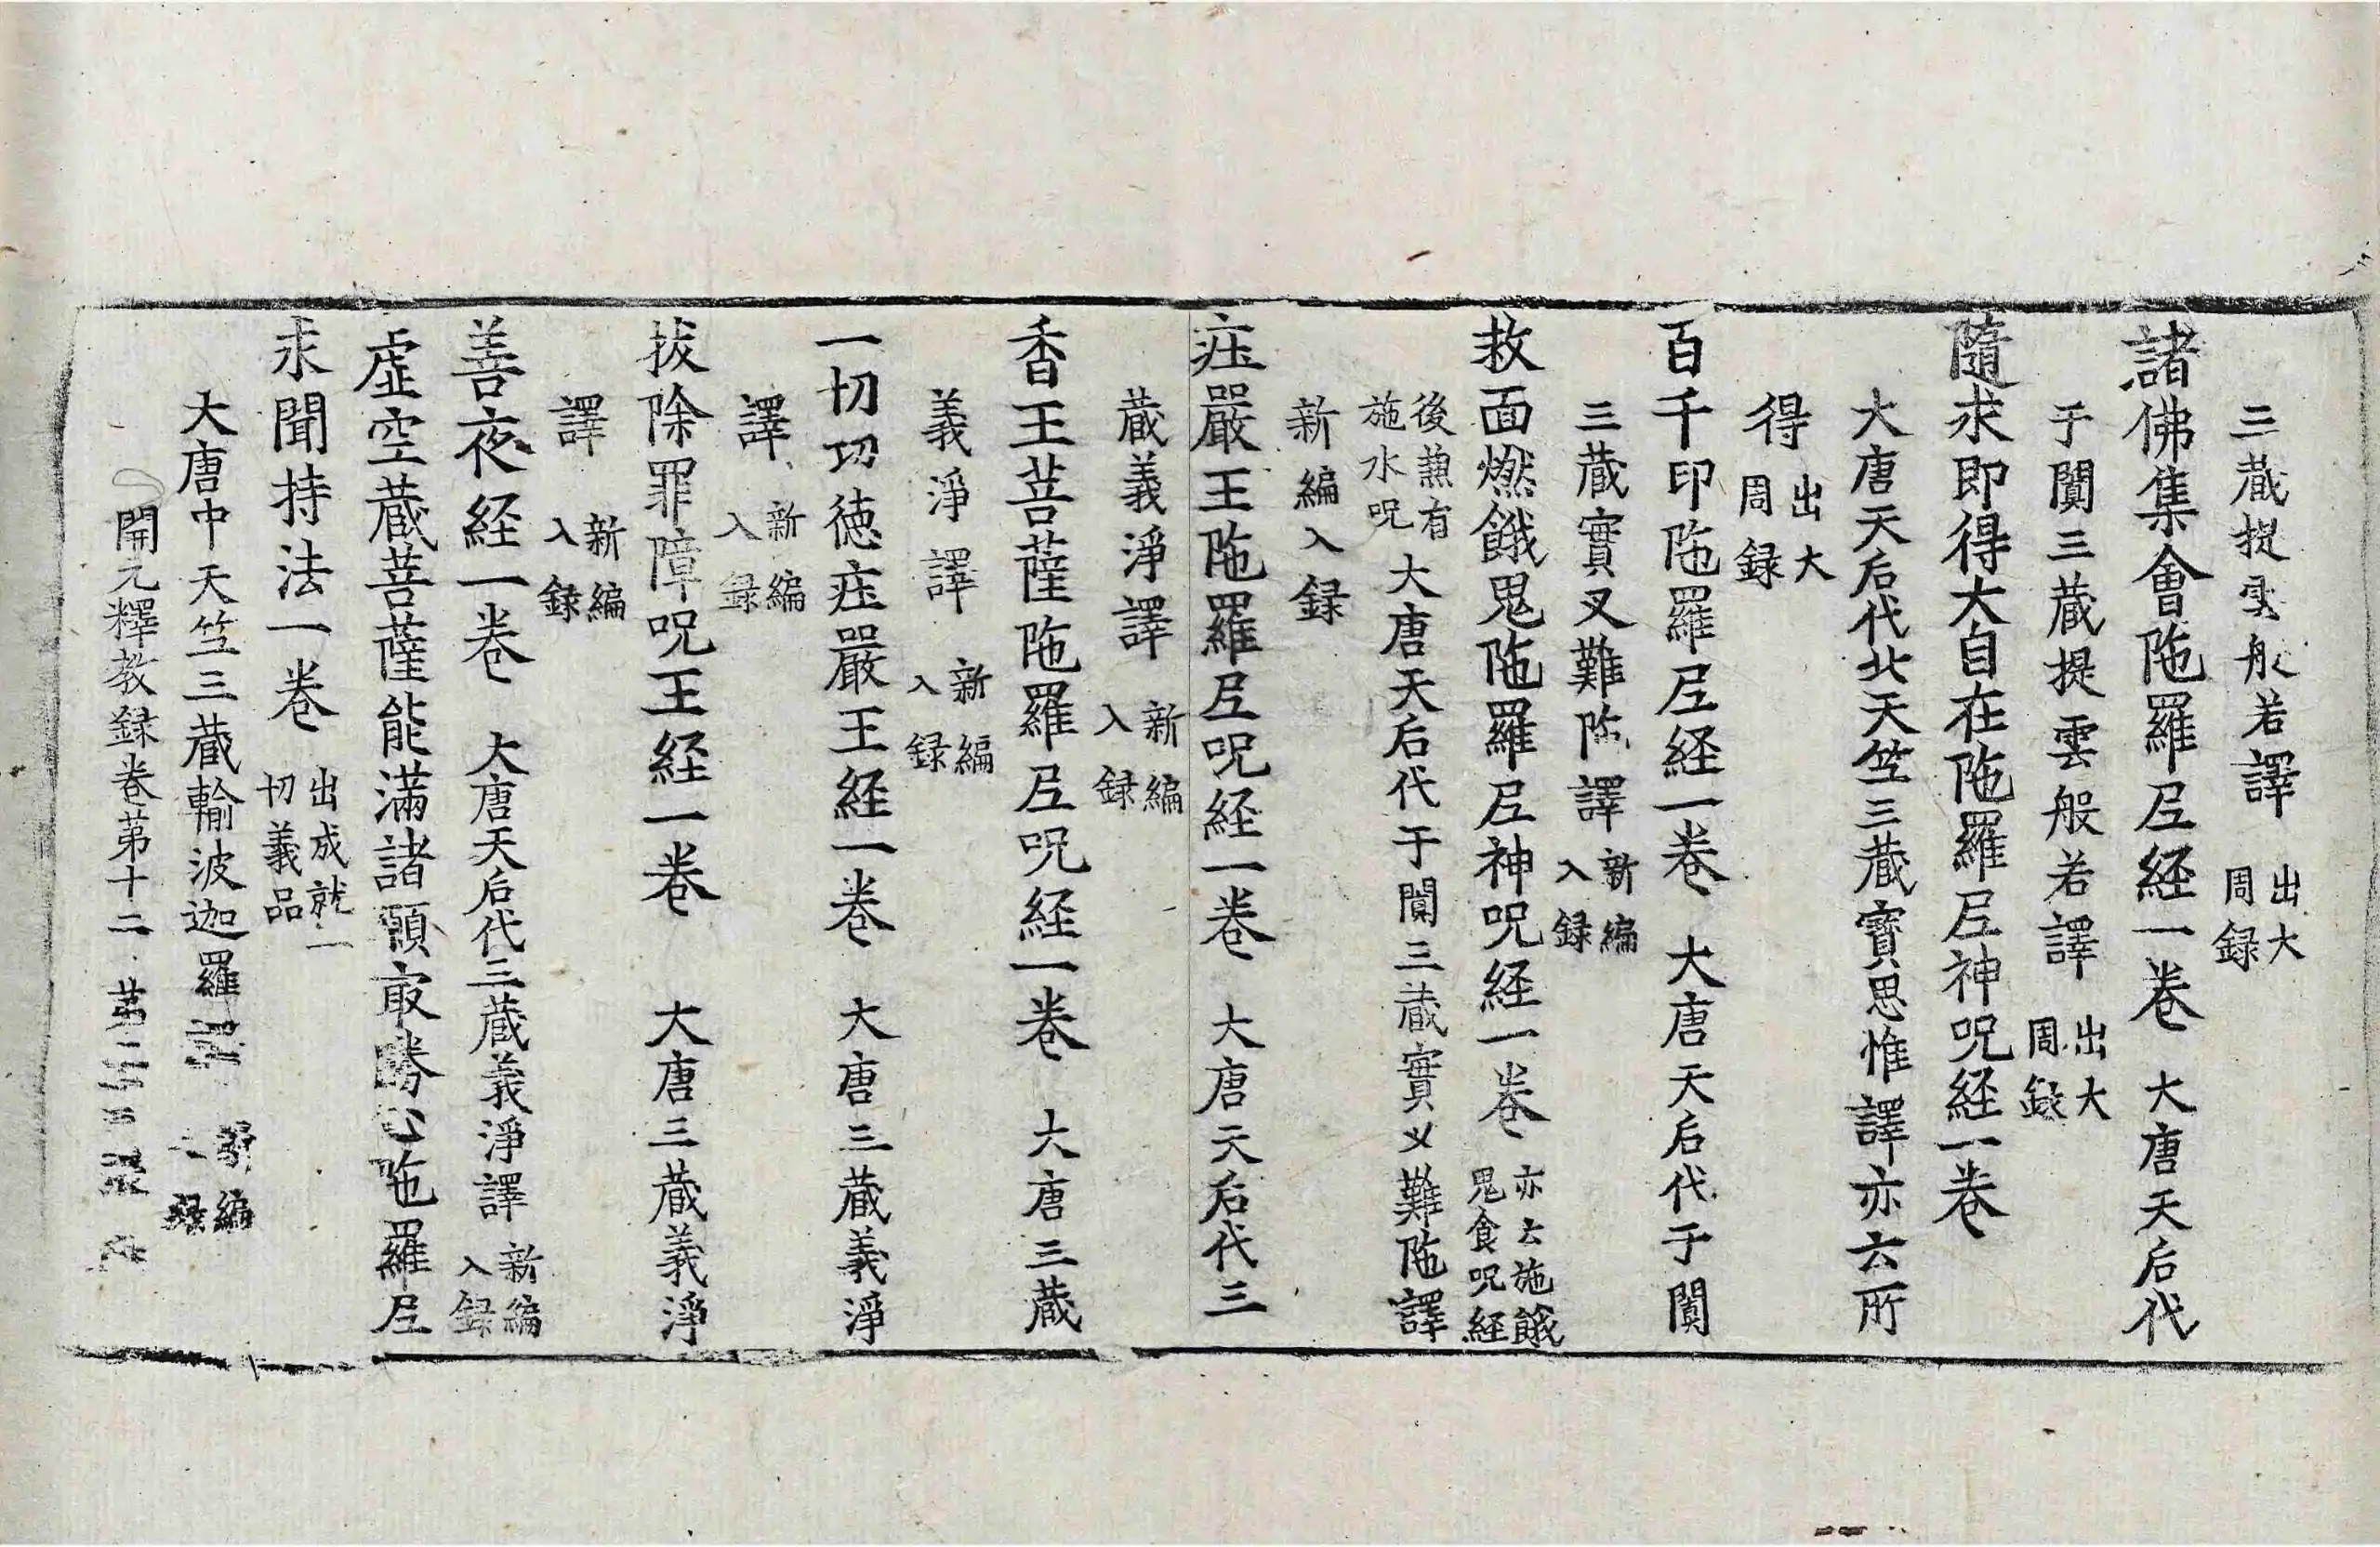 三蔵提雲般若譯 出大周録
諸佛集會陁羅尼経一巻 大唐天后代
于闐三蔵提雲般若譯 出大周録
隨求即得大自在陁羅尼神呪経一巻
大唐天后代北天竺三蔵寳思惟譯亦云所
得 出大周録
百千印陁羅尼経一巻 大唐天后代于闐
三蔵實叉難陁譯 新編入録
救面燃餓鬼陁羅尼神呪経一巻 亦云施餓鬼食呪経
後兼有施水呪 大唐天后代于闐三蔵實叉難陁譯
新編入録
庄嚴王陁羅尼呪経一巻 大唐天后代三
蔵義淨譯 新編入録
香王菩薩陁羅尼呪経一巻 大唐三蔵
義淨譯 新編入録
一切功徳庄嚴王経一巻 大唐三蔵義淨
譯 新編入録
拔除罪障呪王経一巻 大唐三蔵義淨
譯 新編入録
善夜経一巻 大唐天后代三蔵義淨譯 新編入録
虚空蔵菩薩能滿諸願冣勝心陁羅尼
求聞持法一巻 出成就一切義品
大唐中天竺三蔵輸波迦羅譯 新編入録
開元釋教録巻第十二 第